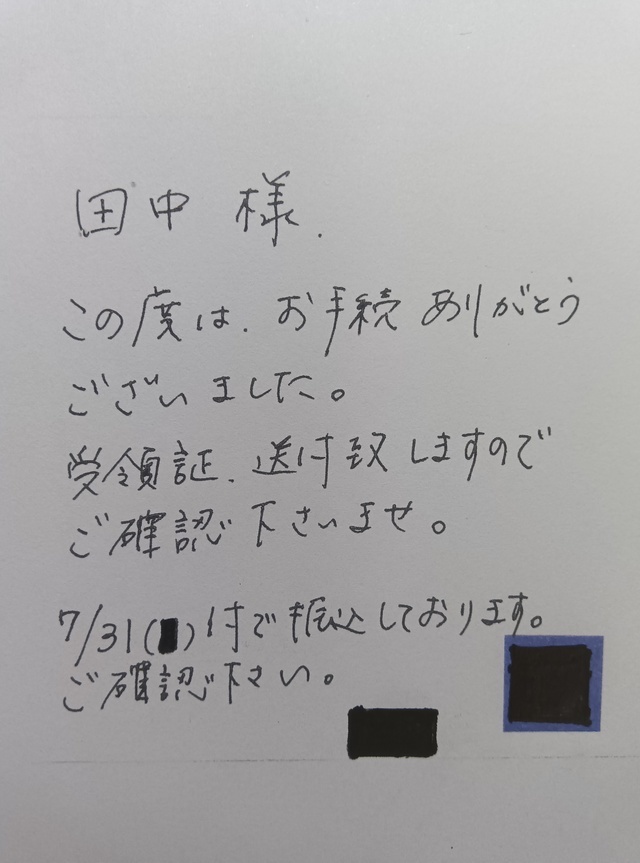 田中 様.
この度は、お手続ありがとう
ございました。
受領証、送付致しますので
ご確認下さいませ。
7/31( )付で振込しております。
ご確認下さい。